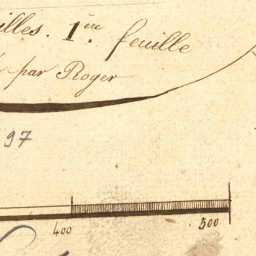 illes. 1.ère feuille
par Roger
97
400 500